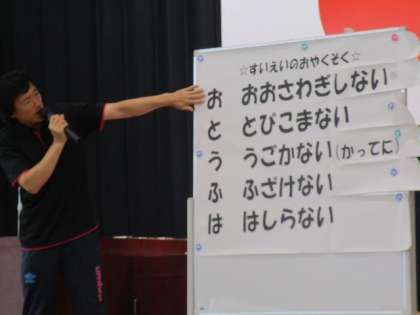 ☆すいえいのおやくそく☆
お おおさわぎしない
と とびこまない
う うごかない(かってに)
ふ ふざけない
は はしらない